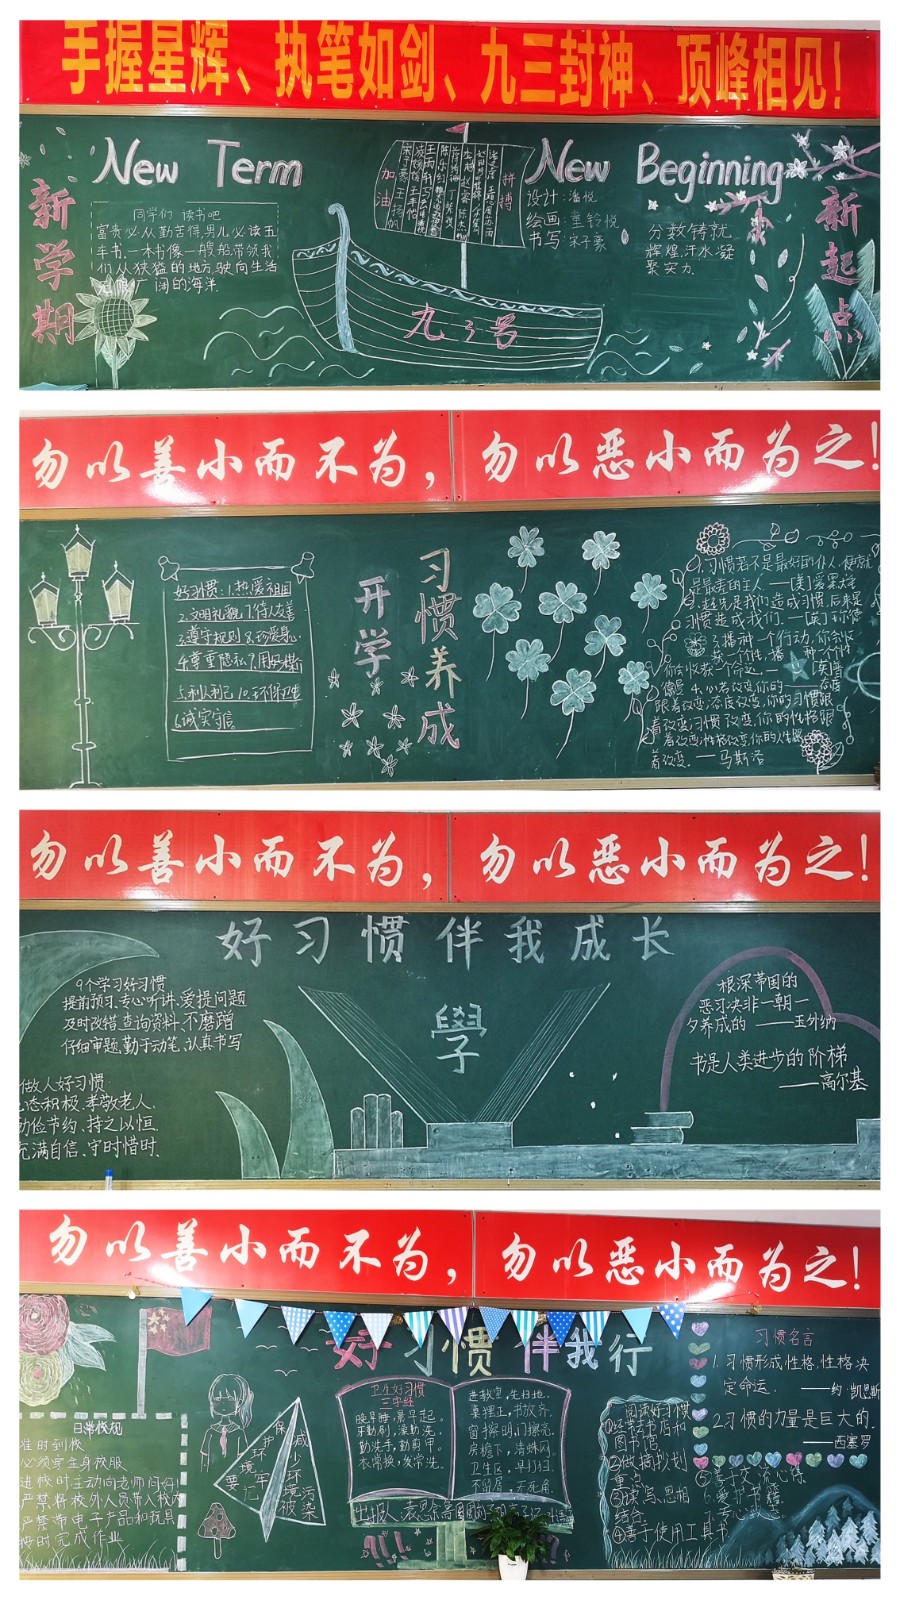 手握星辉、执笔如剑、九三封神、顶峰相见！
New Term
New Beginning
新学期
新起点
同学们 读书吧
富贵必从勤苦得,男儿必读五
车书,一本书像一艘船带领我
们从狭隘的地方,驶向生活
阔的海洋.
加油
拼搏
九3号
设计:
绘画:童铃悦
书写:宋子豪
分数铸就
辉煌,汗水凝
聚实力.
勿以善小而不为，勿以恶小而为之!
好习惯:1.热爱祖国
2.文明礼貌 7.待人友善
3.遵守规则 8.珍爱身心
4.尊重隐私 9.用好
5.利人利己 10.环保卫生
6.诚实守信
开学
习惯养成
1.习惯若不是最好的仆人,便就
是最差的主人
起先是我们造成习惯,后来是
习惯造成我们.
3.播种一个行动,你会收
获一个个性,播种一个个性
你会收获一个命运.
4.心若改变,你的态度
跟着改变;态度改变,你的习惯跟
着改变;习惯改变,你的性格跟
着改变;性格改变,你的人生跟
着改变.——马斯洛
勿以善小而不为，勿以恶小而为之!
好习惯伴我成长
9个学习好习惯
提前预习、专心听讲、爱提问题
及时改错、查询资料、不磨蹭
仔细审题、勤于动笔、认真书写
做人好习惯
心态积极、孝敬老人、
勤俭节约、持之以恒、
充满自信、守时惜时.
學
根深蒂固的
恶习决非一朝一
夕养成的 ——玉外纳
书是人类进步的阶梯
——高尔基
勿以善小而不为，勿以恶小而为之!
好习惯伴我行
日常校规
准时到校
必须穿全身校服
进校时主动向老师问好!
严禁将校外人员带入校内
严禁带电子产品和玩具
按时完成作业
保护环境牢要记
减少环境被污染
卫生好习惯
三字经
晚早睡,晨早起.
牙勤刷,澡勤洗.
勤洗手,勤剪甲.
衣常换,发常洗.
进教室,先扫地.
桌摆正,书放齐.
窗擦明,门擦亮.
房檐下,清蛛网.
卫生区,早打扫.
不留屑,无死角.
阅读好习惯
①经常去书店和
图书馆
②做摘抄,划
重点
③读写、思相
结合
④善于使用工具书
⑤善于交流心得
6.爱护书籍
7.专心致志
习惯名言
1.习惯形成性格,性格决
定命运.——约·凯恩斯
2.习惯的力量是巨大的.
——西塞罗